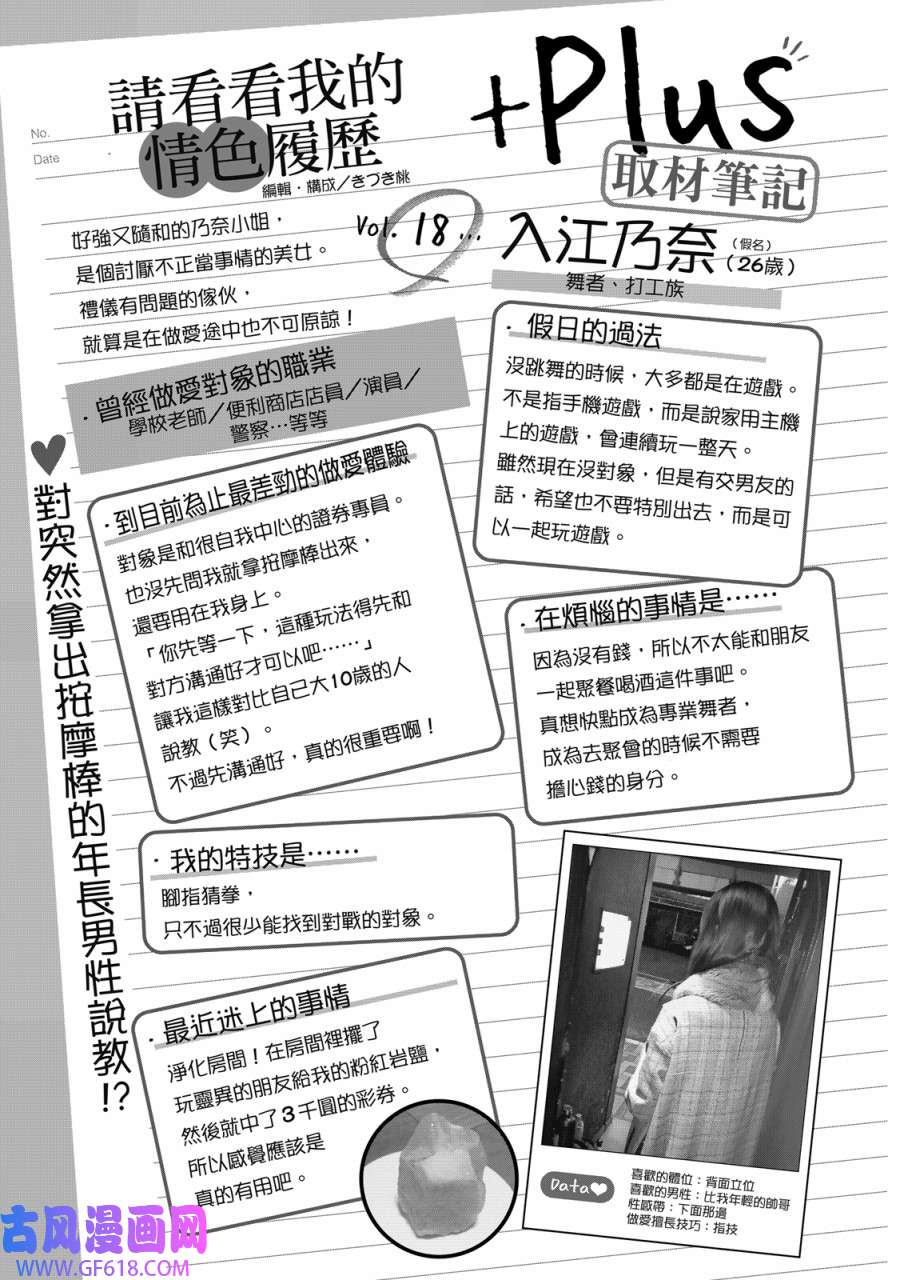 No.
Date
請看看我的
情色履歷
編輯・構成／きづき桃
+Plus
取材筆記
好強又隨和的乃奈小姐，
是個討厭不正當事情的美女。
禮儀有問題的傢伙，
就算是在做愛途中也不可原諒！
Vol. 18...
入江乃奈
（假名）
（26歲）
舞者、打工族
・曾經做愛對象的職業
學校老師／便利商店店員／演員／
警察…等等
・假日的過法
沒跳舞的時候，大多都是在遊戲。
不是指手機遊戲，而是說家用主機
上的遊戲，曾連續玩一整天。
雖然現在沒對象，但是有交男友的
話，希望也不要特別出去，而是可
以一起玩遊戲。
♥對突然拿出按摩棒的年長男性說教!?
・到目前為止最差勁的做愛體驗
對象是和很自我中心的證券專員。
也沒先問我就拿按摩棒出來，
還要用在我身上。
「你先等一下，這種玩法得先和
對方溝通好才可以吧……」
讓我這樣對比自己大10歲的人
說教（笑）。
不過先溝通好，真的很重要啊！
・在煩惱的事情是……
因為沒有錢，所以不太能和朋友
一起聚餐喝酒這件事吧。
真想快點成為專業舞者，
成為去聚會的時候不需要
擔心錢的身分。
・我的特技是……
腳指猜拳，
只不過很少能找到對戰的對象。
・最近迷上的事情
淨化房間！在房間裡擺了
玩靈異的朋友給我的粉紅岩鹽，
然後就中了3千圓的彩券。
所以感覺應該是
真的有用吧。
Data♥
喜歡的體位：背面立位
喜歡的男性：比我年輕的帥哥
性感帶：下面那邊
做愛擅長技巧：指技
古风漫画网
WWW.GF618.COM